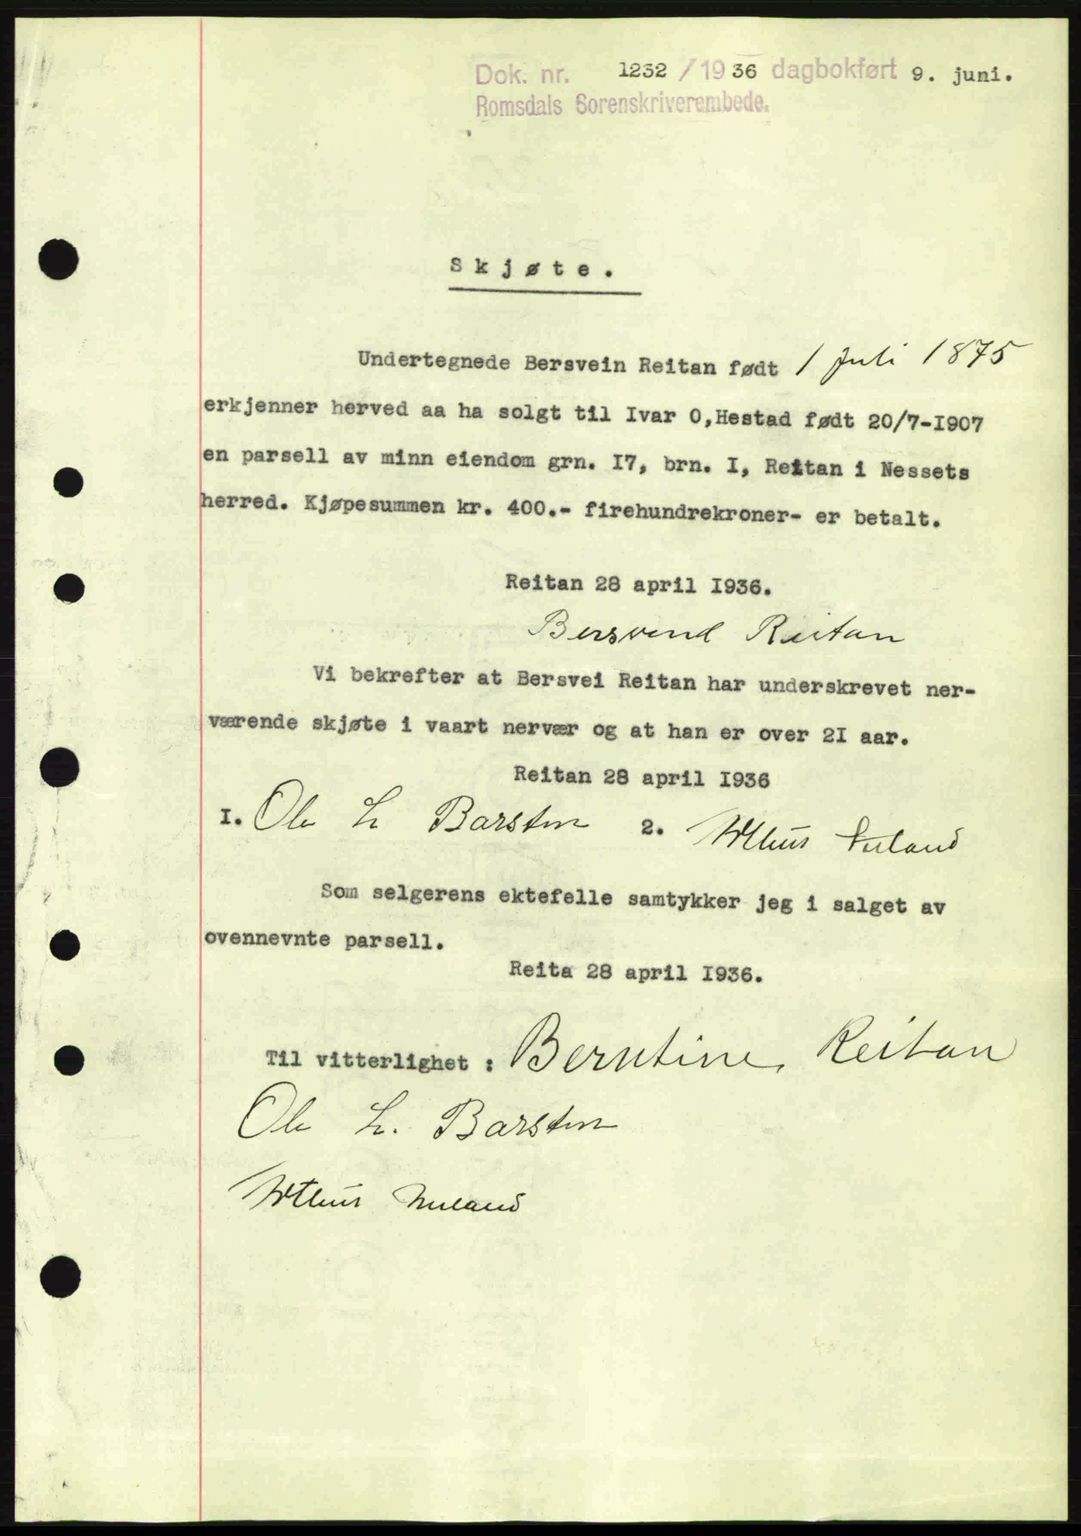 Dok. nr. 1232 / 1936 dagbokført 9. juni.
Romsdals Sorenskriverembede.
Skjøte.
Undertegnede Bersvein Reitan født 1 Juli 1875
erkjenner herved aa ha solgt til Ivar O,Hestad født 20/7-I907
en parsell av minn eiendom grn. I7, brn. I, Reitan i Nessets
herred. Kjøpesummen kr. 400.- firehundrekroner- er betalt.
Reitan 28 april I936.
Bersvend Reitan
Vi bekrefter at Bersvei Reitan har underskrevet ner-
værende skjøte i vaart nervær og at han er over 2I aar.
Reitan 28 april I936
I. Ole L Barsten 2.
Som selgerens ektefelle samtykker jeg i salget av
ovennevnte parsell.
Reita 28 april I936.
Til vitterlighet : Berntine Reitan
Ole L. Barsten